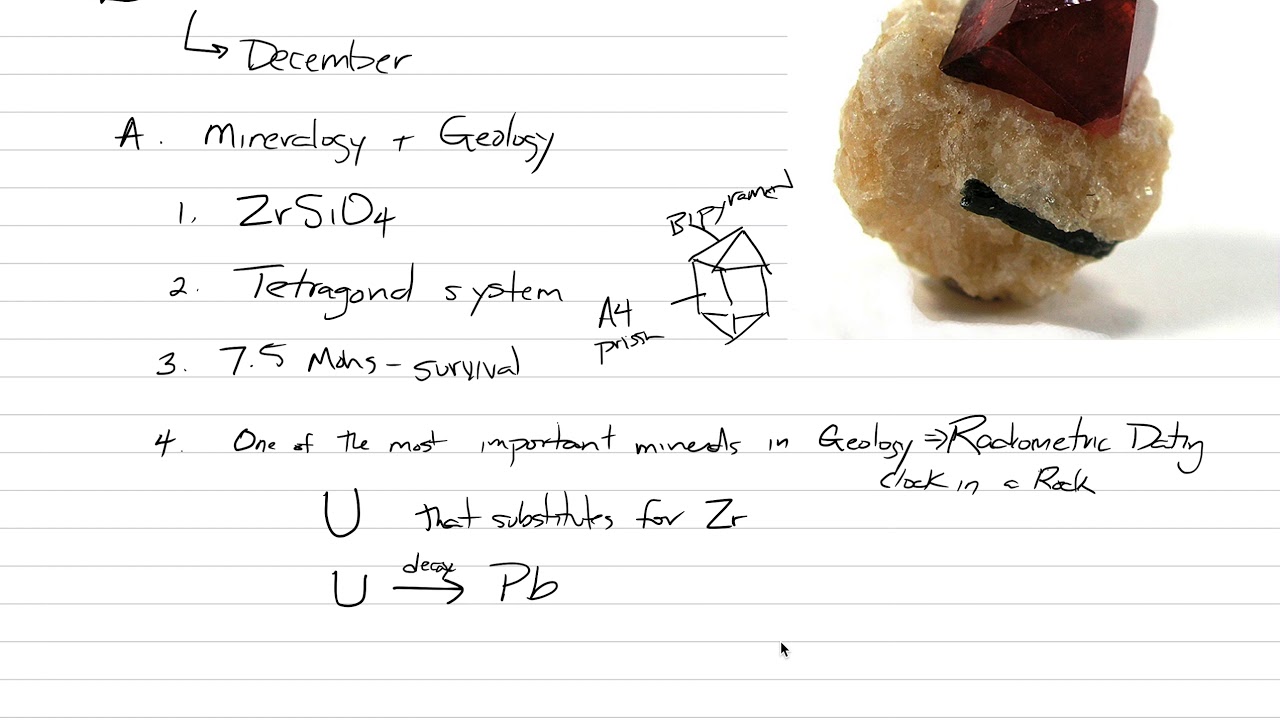 December
A. Minerology + Geology
1. ZrSiO4
Bipyramid
2. Tetragonal system
A4
prism
3. 7.5 Mohs - survival
4. One of the most important minerals in Geology ⇒ Radiometric Dating
clock in a Rock
U that substitutes for Zr
decay
U → Pb